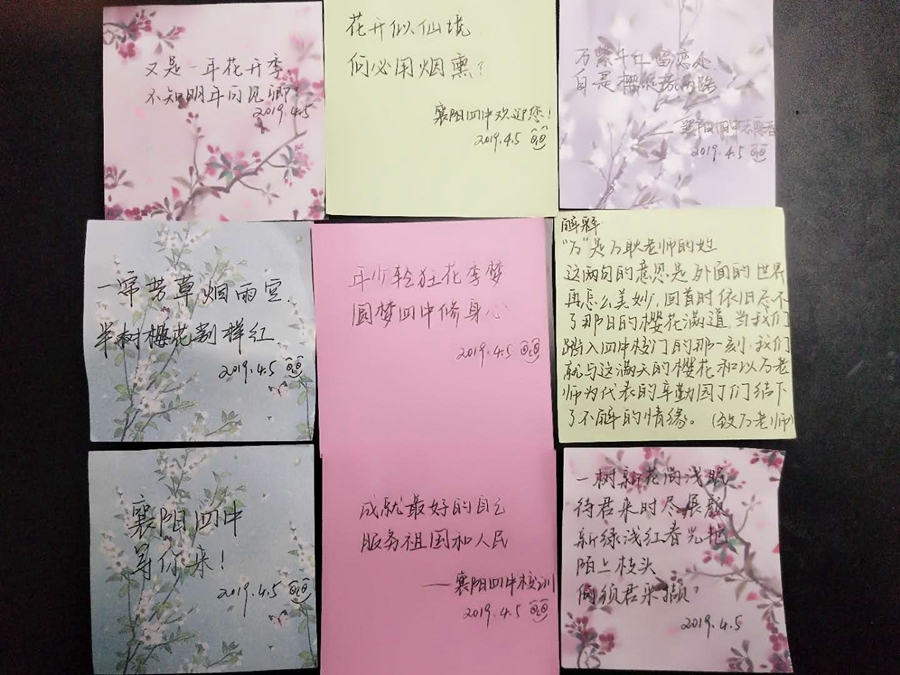 又是一年花开季
不知明年何见卿?
2019.4.5
花开似仙境
何必用烟熏?
襄阳四中欢迎您!
2019.4.5
万紫千红留恋处
自是樱
襄阳四中
2019.4.5
一帘芳草烟雨空.
半树樱花别样红
2019.4.5
年少轻狂花季梦
圆梦四中修身心
2019.4.5
解释
"万"是万耿老师的姓
这两句的意思是外面的世界
再怎么美妙,回首时依旧忘不
了那日的樱花满道,当我们
踏入四中校门的那一刻,我们
就与这满天的樱花和以万老
师为代表的辛勤园丁们结下
了不解的情缘。(致万老师)
襄阳四中
等你来!
2019.4.5
成就最好的自己
服务祖国和人民
——襄阳四中校训
2019.4.5
一树新花尚浅眠
待君来时尽展颜
新绿浅红春光艳
陌上枝头
何须君采撷?
2019.4.5